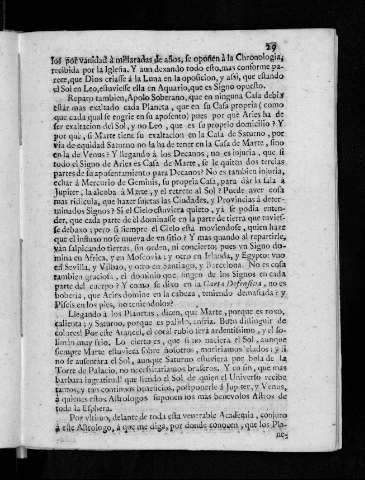 29
los por vanidad à millaradas de años, se oponen à la Chronologia,
recibida por la Iglesia. Y aun dexando todo esto, mas conforme pa-
rece, que Dios criasse à la Luna en la oposicion, y assi, que estando
el Sol en Leo, estuviesse ella en Aquario, que es Signo opuesto.
Reparo tambien, Apolo Soberano, que en ninguna Casa debia
estàr mas exaltado cada Planeta, que en su Casa propria (como
que cada qual se engrie en su aposento) pues por què Aries ha de
ser exaltacion del Sol, y no Leo, que es su proprio domicilio? Y
por què, si Marte tiene su exaltacion en la Casa de Saturno, por
via de equidad Saturno no la ha de tener en la Casa de Marte, sino
en la de Venus? Y llegando à los Decanos, no es injuria, que si
todo el Signo de Aries es Casa de Marte, se le quiten dos tercias
partes de su aposentamiento para Decanos? No es tambien injuria,
echàr à Mercurio de Geminis, su propria Casa, para dàr la sala à
Jupiter; la alcoba à Marte, y el retrete al Sol? Puede aver cosa
mas ridicula, que hazer sujetas las Ciudades, y Provincias à deter-
minados Signos? Si el Cielo estuviera quieto, yà se podia enten-
der, que cada parte de èl dominasse en la parte de tierra que tuvies-
se debaxo; pero si siempre el Cielo està moviendose, quien hare
que el influxo no se mueva de vn sitio? Y mas quando al repartirle,
vàn salpicando tierras, sin orden, ni concierto; pues vn Signo do-
mina en Africa, y en Moscovia; y otro en Irlanda, y Egypto: vno
en Sevilla, y Vilbao, y otro en Santiago, y Barcelona. No es cosa
tambien graciosa, el dominio que fingen de los Signos en cada
parte del cuerpo? Y como se dixo en la Carta Defensiva, no es
boberia, que Aries domine en la cabeza, teniendo demasiada? y
Piscis en los pies, no teniendolos?
Llegando à los Planetas, dicen, que Marte, porque es roxo,
calienta; y Saturno, porque es palido, enfria. Buen distinguir de
colores! Por este Arancel, el coral rubio serà ardentissimo, y el so-
limàn muy frio. Lo cierto es, que si no naciera el Sol, aunque
siempre Marte estuviera sobre nosotros, moririamos elados; y si
no se ausentàra el Sol, aunque Saturno estuviera por bola de la
Torre de Palacio, no necessitariamos braseros. Y en fin, que mas
barbara ingratitud que siendo el Sol de quien el Universo recibe
tantos, y tan continuos beneficios, posponerle à Jupiter, y Venus,
à quienes estos Astrologos suponen los mas benevolos Astros de
toda la Esphera.
Por vltimo, delante de toda esta venerable Academia, conjuro
à este Astrologo, à que me diga, por donde conocen, que los Pla-
ne-